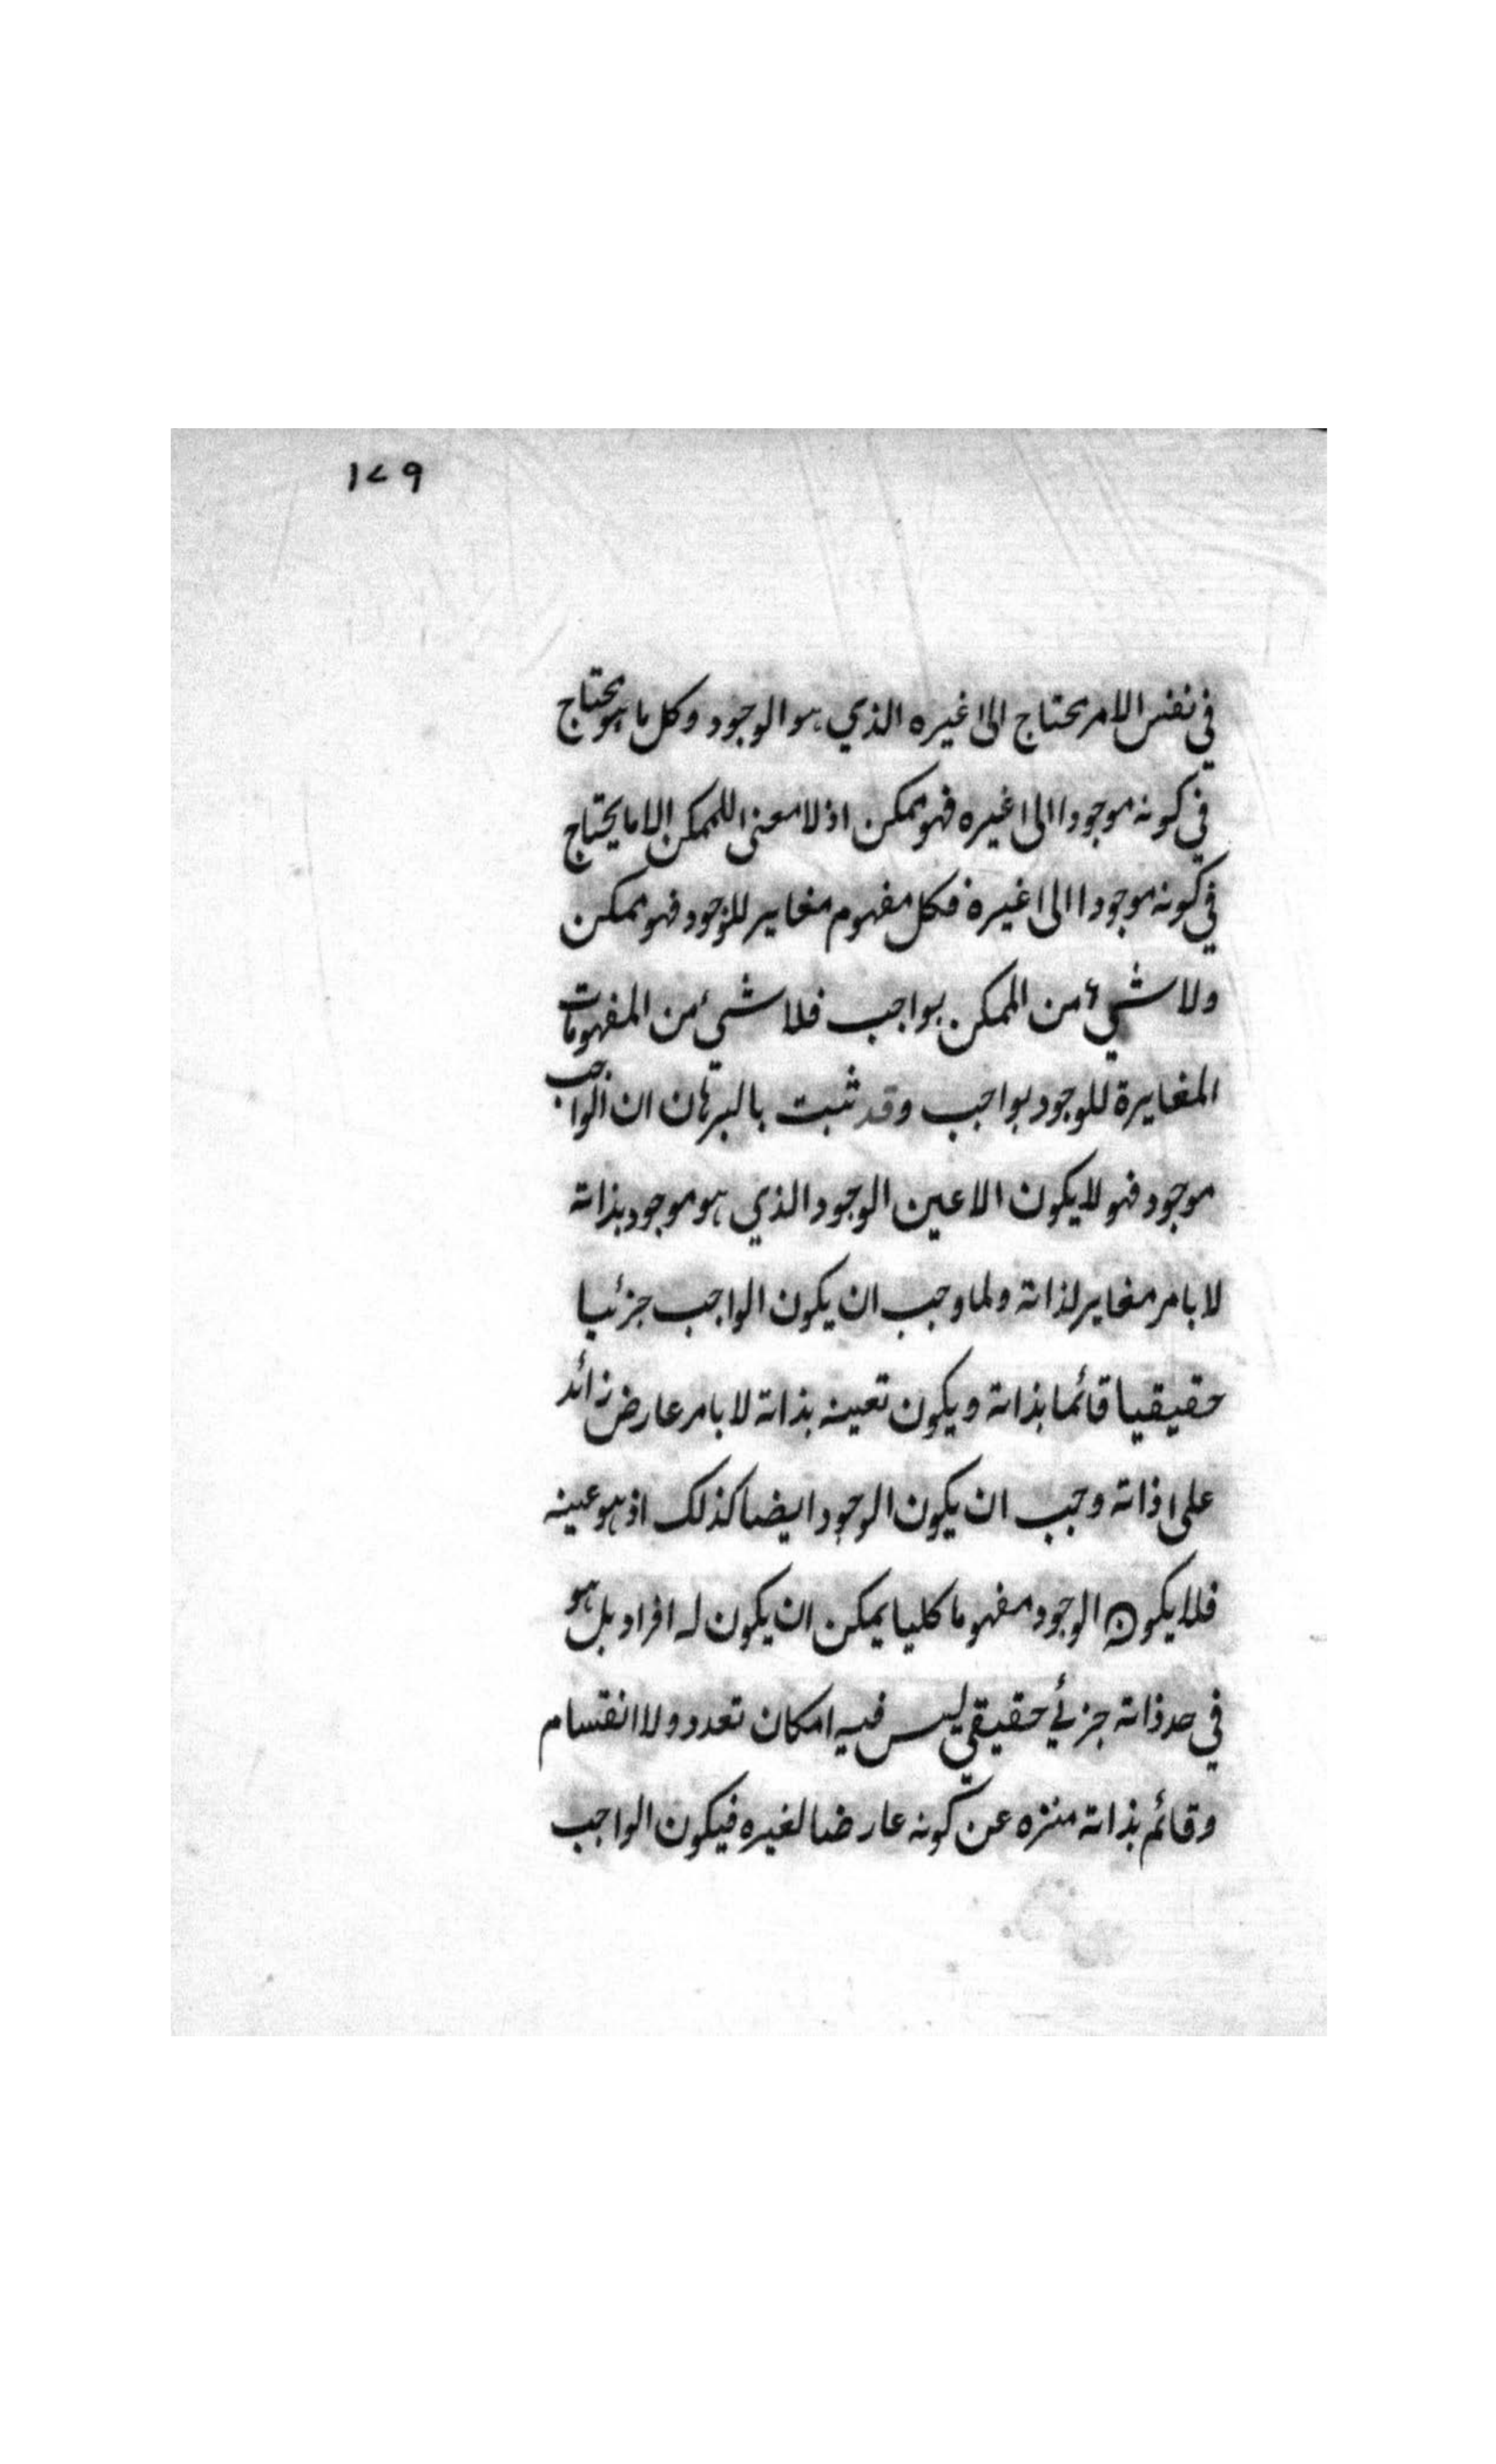 ١٧٩
في نفس الامر يحتاج الى غيره الذي هو الوجود وكل ما هو يحتاج
في كونه موجودا الى غيره فهو ممكن اذ لا معنى للممكن الا ما يحتاج
في كونه موجودا الى غيره فكل مفهوم مغاير للوجود فهو ممكن
ولا شيء من الممكن بواجب فلا شيء من المفهومات
المغايرة للوجود بواجب وقد ثبت بالبرهان ان الواجب
موجود فهو لا يكون الا عين الوجود الذي هو موجود بذاته
لا بامر مغاير لذاته ولما وجب ان يكون الواجب جزئيا
حقيقيا قائما بذاته ويكون تعينه بذاته لا بامر عارض زائد
على ذاته وجب ان يكون الوجود ايضا كذلك اذ هو عينه
فلا يكون الوجود مفهوما كليا يمكن ان يكون له افراد بل هو
في حد ذاته جزئي حقيقي ليس فيه امكان تعدد ولا انقسام
وقائم بذاته منزه عن كونه عارضا لغيره فيكون الواجب